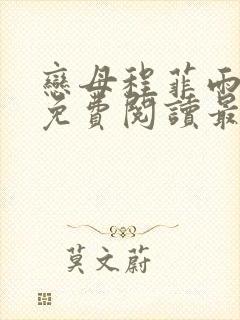 戀母程菲雨
免費閱讀最
莫文蔚